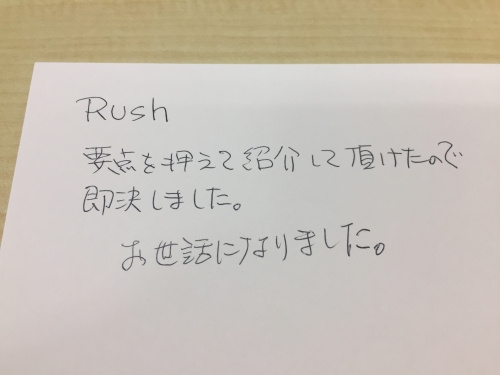 Rush
要点を押えて紹介して頂けたので
即決しました。
お世話になりました。